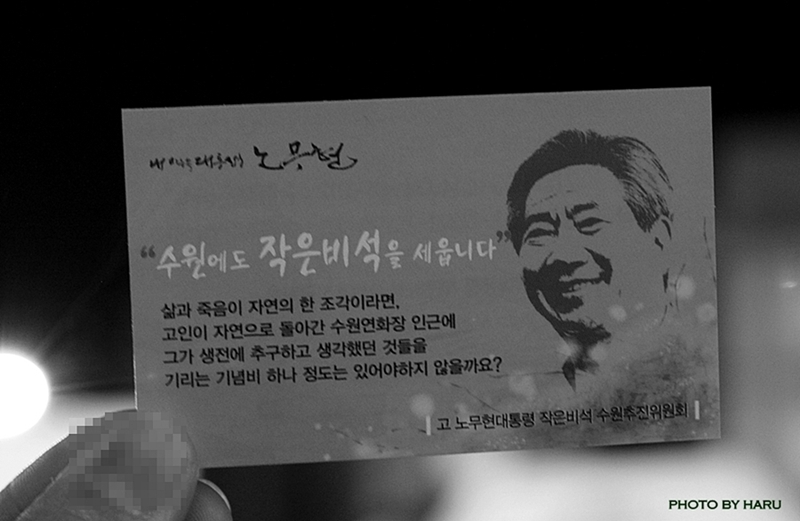 내 마음속 대통령 노무현
“수원에도 작은비석을 세웁니다”
삶과 죽음이 자연의 한 조각이라면,
고인이 자연으로 돌아간 수원연화장 인근에
그가 생전에 추구하고 생각했던 것들을
기리는 기념비 하나 정도는 있어야하지 않을까요?
고 노무현대통령 작은비석 수원추진위원회
PHOTO BY HARU